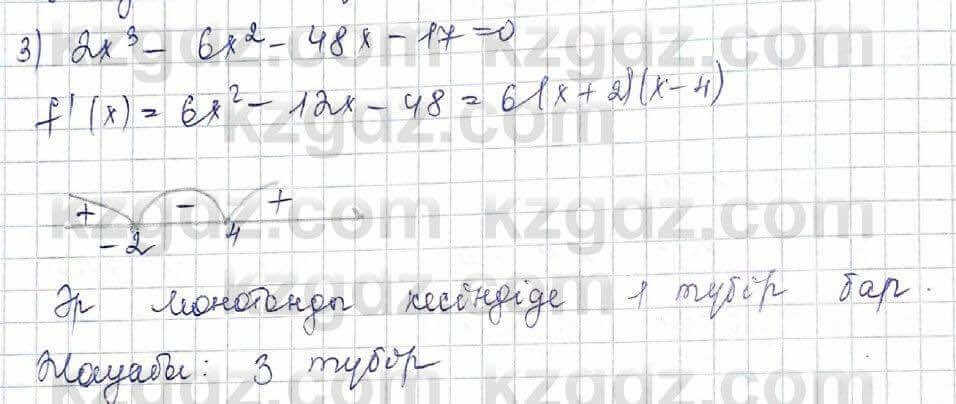 3) 2x³ - 6x² - 48x - 17 = 0
f'(x) = 6x² - 12x - 48 = 6(x + 2)(x - 4)
+ - +
-2 4
Әр монотонды кесіндіде 1 түбір бар.
Жауабы: 3 түбір